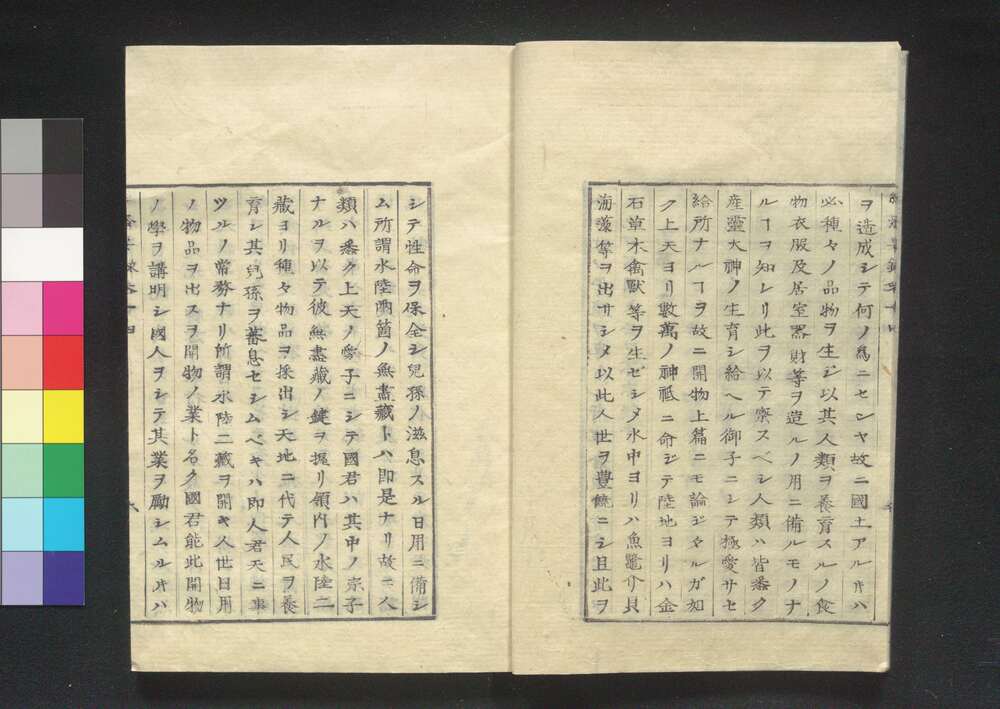 ヲ造成シテ何ノ爲ニセンヤ故ニ國土アル片ハ
必種々ノ品物ヲ生ジ以其人類ヲ養育スルノ食
物衣服及居室器財等ヲ造ルノ用ニ備ルモノナ
ルヿヲ知レリ此ヲ以テ察スベシ人類ハ皆悉ク
産靈大神ノ生育シ給ヘル御子ニシテ極愛サセ
給所ナルヿヲ故ニ開物上篇ニモ論ジヤルガ如
ク上天ヨリ數萬ノ神祇ニ命ジテ陸地ヨリハ金
石草木禽獸等ヲ生ゼシメ水中ヨリハ魚鼈介貝
海藻等ヲ出サシメ以此人世ヲ豐饒ニシ且此ヲ
シテ性命ヲ保全シ兒孫ノ滋息スル日用ニ備シ
ム所謂水陸兩箇ノ無盡藏トハ即是ナリ故ニ人
類ハ悉ク上天ノ愛子ニシテ國君ハ其中ノ宗子
ナルヲ以テ彼無盡藏ノ鍵ヲ握リ領内ノ水陸二
藏ヨリ種々物品ヲ採出シ天地ニ代テ人民ヲ養
育シ其兒孫ヲ蕃息セシムベキハ即人君天ニ事
ツルノ常務ナリ所謂水陸二藏ヲ開キ人世日用
ノ物品ヲ出スヲ開物ノ業ト名ク國君能此開物
ノ學ヲ講明シ國人ヲシテ其業ヲ勵シムル片ハ